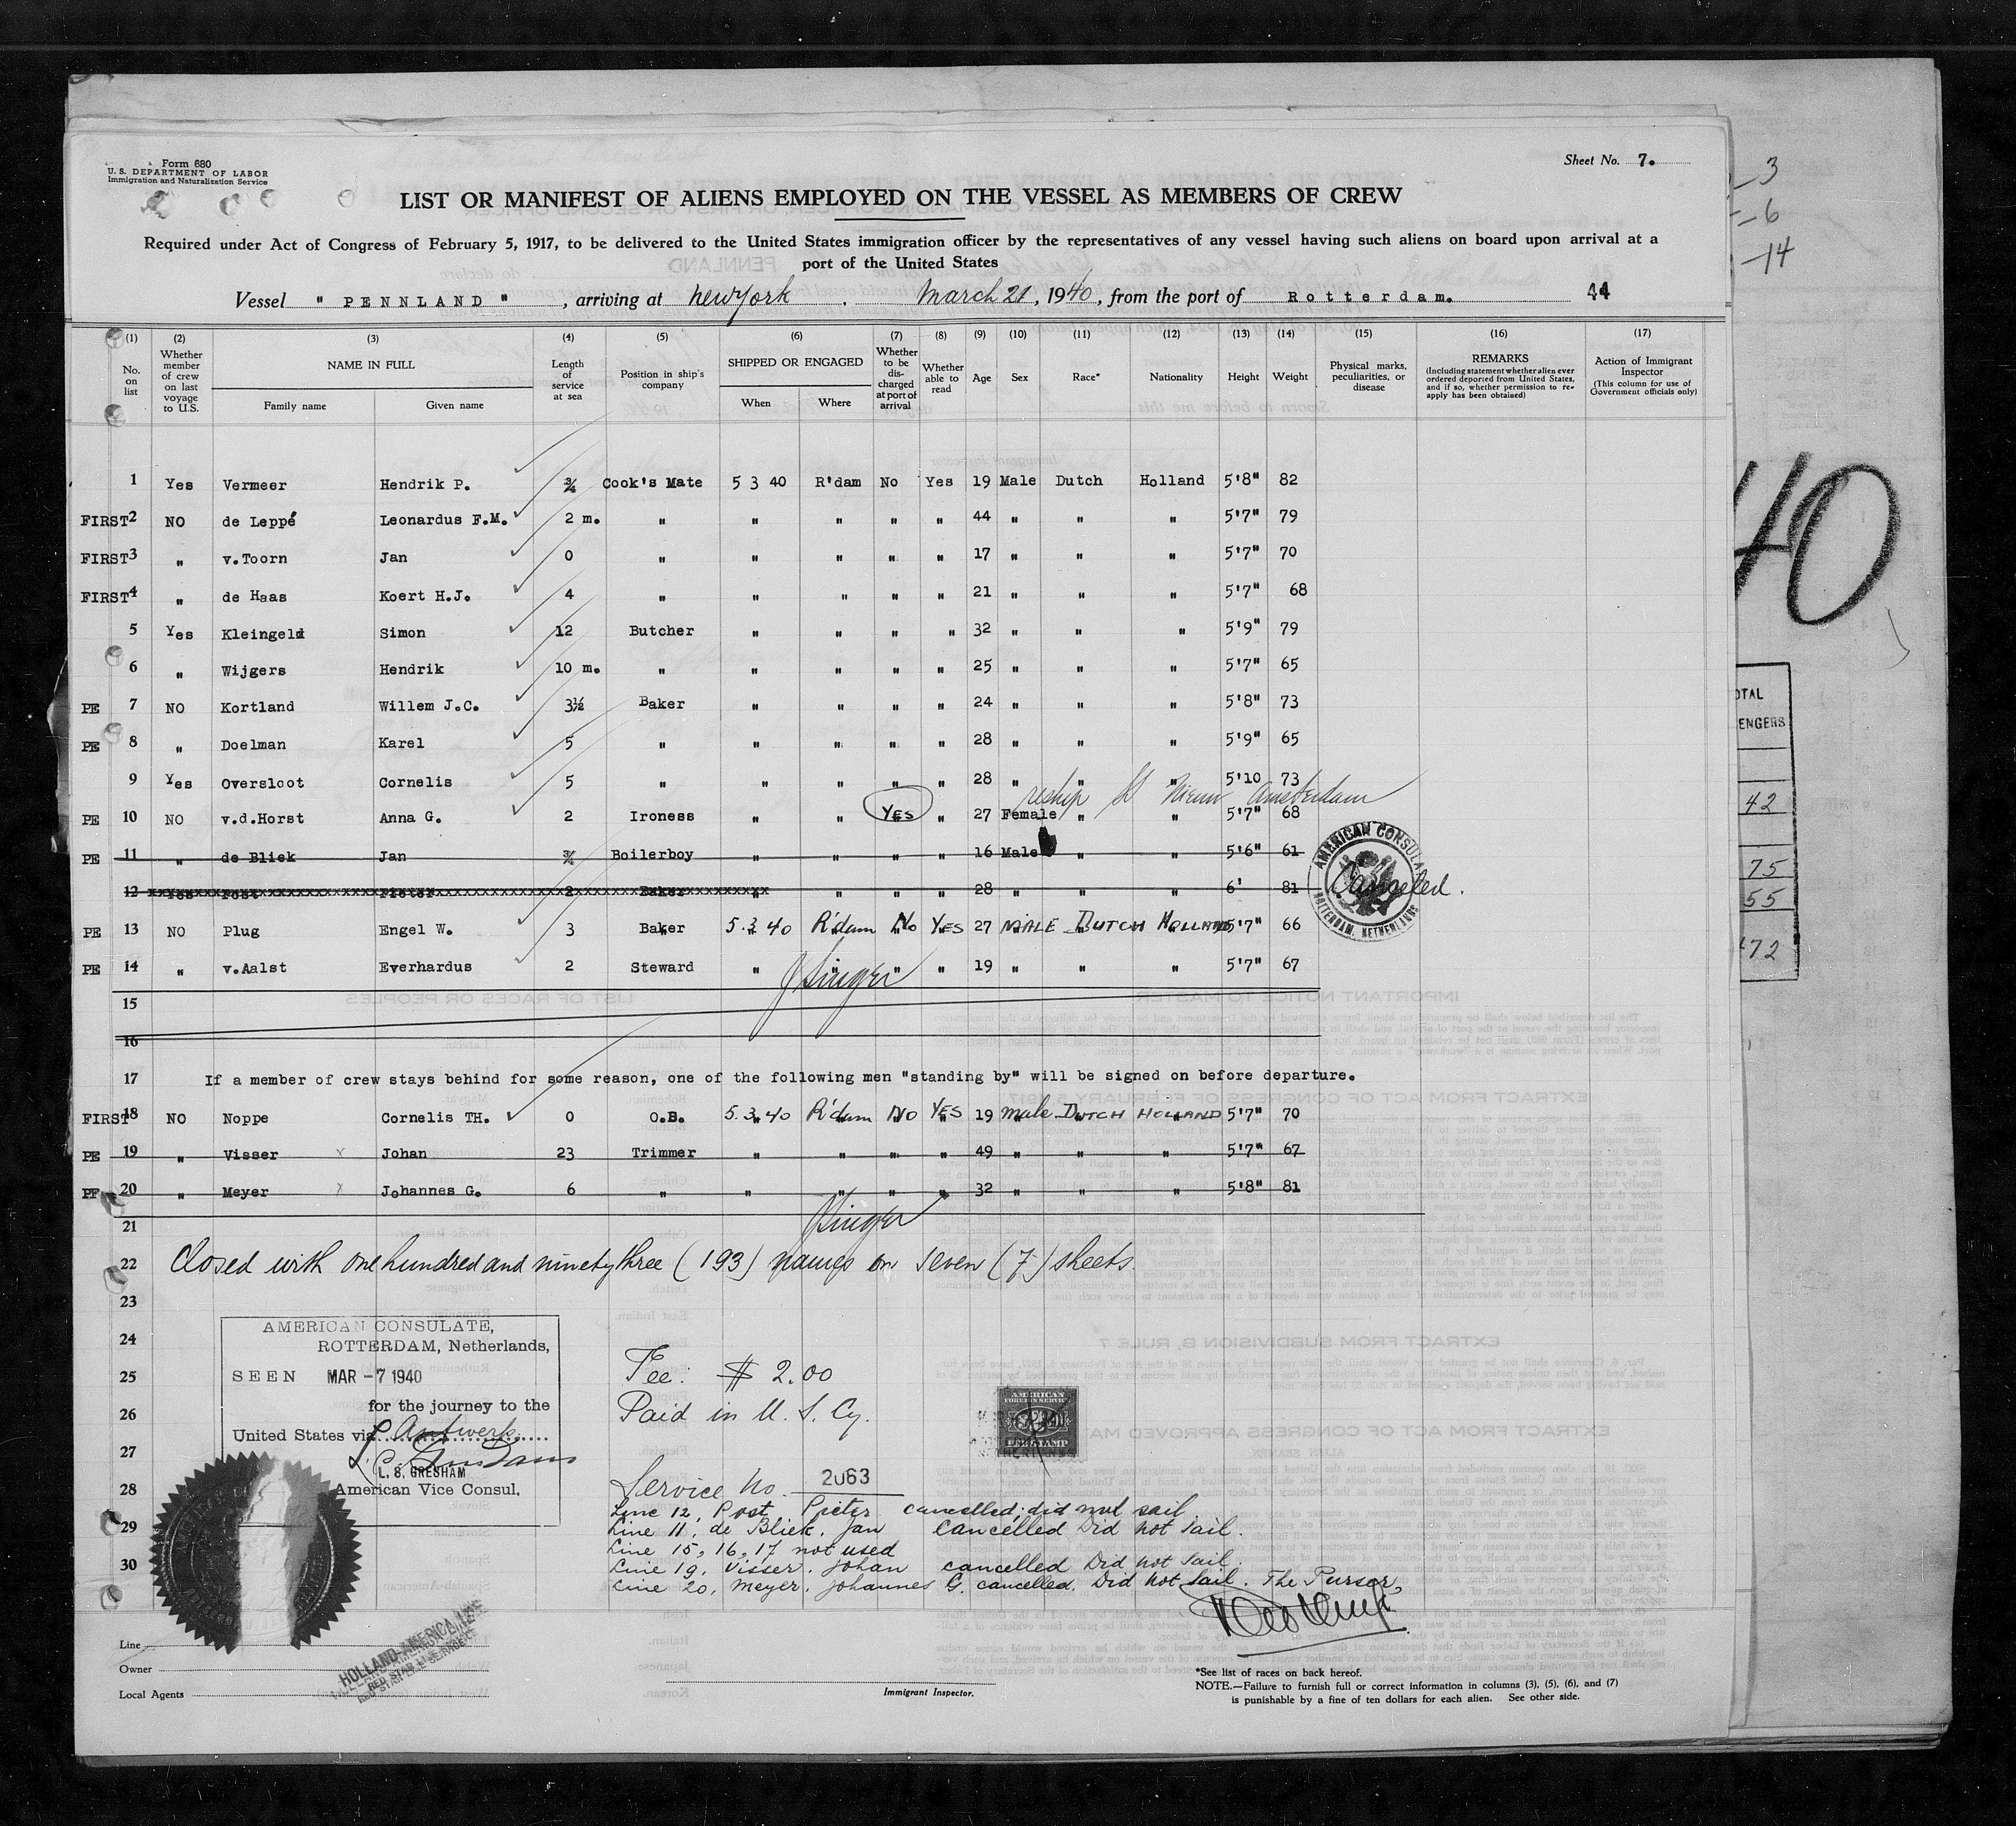 Form 680
U. S. DEPARTMENT OF LABOR
Immigration and Naturalization Service
Sheet No. 7.
LIST OR MANIFEST OF ALIENS EMPLOYED ON THE VESSEL AS MEMBERS OF CREW
Required under Act of Congress of February 5, 1917, to be delivered to the United States immigration officer by the representatives of any vessel having such aliens on board upon arrival at a
port of the United States
Vessel " PENNLAND " , arriving at New York , March 21, 1940, from the port of Rotterdam. 44
(1) (2) (3) (4) (5) (6) (7) (8) (9) (10) (11) (12) (13) (14) (15) (16) (17)
No. on list Whether member of crew on last voyage to U.S. NAME IN FULL Family name Given name Length of service at sea Position in ship's company SHIPPED OR ENGAGED When Where Whether to be discharged at port of arrival Whether able to read Age Sex Race* Nationality Height Weight Physical marks, peculiarities, or disease REMARKS (Including statement whether alien ever ordered deported from United States, and if so, whether permission to reapply has been obtained) Action of Immigrant Inspector (This column for use of Government officials only)
1 Yes Vermeer Hendrik P. ¾ Cook's Mate 5 3 40 R'dam No Yes 19 Male Dutch Holland 5'8" 82
FIRST 2 NO de Leppé Leonardus F.M. 2 m. " " " " " 44 " " " 5'7" 79
FIRST 3 " v.Toorn Jan 0 " " " " " 17 " " " 5'7" 70
FIRST 4 " de Haas Koert H.J. 4 " " " " " 21 " " " 5'7" 68
5 Yes Kleingeld Simon 12 Butcher " " " " 32 " " " 5'9" 79
6 " Wijgers Hendrik 10 m. " " " " " 25 " " " 5'7" 65
PE 7 NO Kortland Willem J.C. 3½ Baker " " " " 24 " " " 5'8" 73
PE 8 " Doelman Karel 5 " " " " " 28 " " " 5'9" 65
9 Yes Oversloot Cornelis 5 " " " " " 28 " " " 5'10 73
reship SS Nieuw Amsterdam
PE 10 NO v.d.Horst Anna G. 2 Ironess " " YES " 27 Female " " 5'7" 68
PE 11 " de Bliek Jan ¾ Boilerboy " " " " 16 Male " " 5'6" 61
12 Yes Post Pieter 2 Baker " " " " 28 " " " 6' 81 Canceled.
AMERICAN CONSULATE ROTTERDAM, NETHERLANDS
PE 13 NO Plug Engel W. 3 Baker 5.3 40 R'dam No YES 27 MALE DUTCH HOLLAND 5'7" 66
PE 14 " v.Aalst Everhardus 2 Steward " " " " 19 " " " 5'7" 67
15
16
17 If a member of crew stays behind for some reason, one of the following men "standing by" will be signed on before departure.
FIRST 18 NO Noppe Cornelis TH. 0 O.B. 5.3.40 R'dam NO YES 19 male DUTCH HOLLAND 5'7" 70
PE 19 " Visser x Johan 23 Trimmer " " " " 49 " " " 5'7" 67
PE 20 " Meyer x Johannes G. 6 " " " " " 32 " " " 5'8" 81
21
22 Closed with one hundred and ninety three (193) names on seven (7) sheets.
23
24
25
26
27
28
29
30
AMERICAN CONSULATE,
ROTTERDAM, Netherlands,
SEEN MAR -7 1940
for the journey to the
United States via Antwerp.
L. S. GRESHAM
American Vice Consul.
Fee: $ 2.00
Paid in U. S. Cy.
AMERICAN
FOREIGN SERVICE
FEE STAMP
Service No. 2063
Line 12, Post Pieter cancelled; did not sail
Line 11, de Bliek, Jan cancelled Did not sail.
Line 15, 16, 17 not used
Line 19, Visser, Johan cancelled Did not sail.
Line 20, Meyer, Johannes G. cancelled. Did not sail. The Purser,
Line
Owner
Local Agents
HOLLAND-AMERICA LINE
RED STAR LINE SERVICE
Immigrant Inspector.
*See list of races on back hereof.
NOTE.—Failure to furnish full or correct information in columns (3), (5), (6), and (7)
is punishable by a fine of ten dollars for each alien. See other side.
3
6
14
40
42
75
55
72